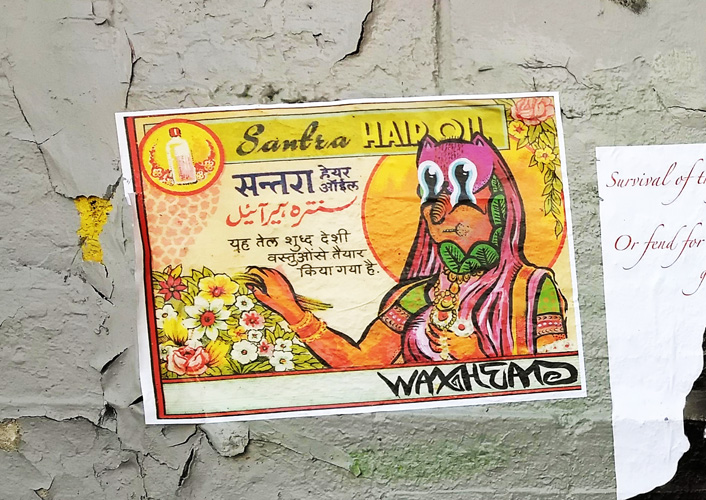 Santra HAIR OIL
सन्तरा हेयर ऑईल
سنترہ ہیر آئیل
यह तेल शुध्द देशी
वस्तुओसे तैयार
किया गया है.
WAXHEAD
Survival of
Or fend for